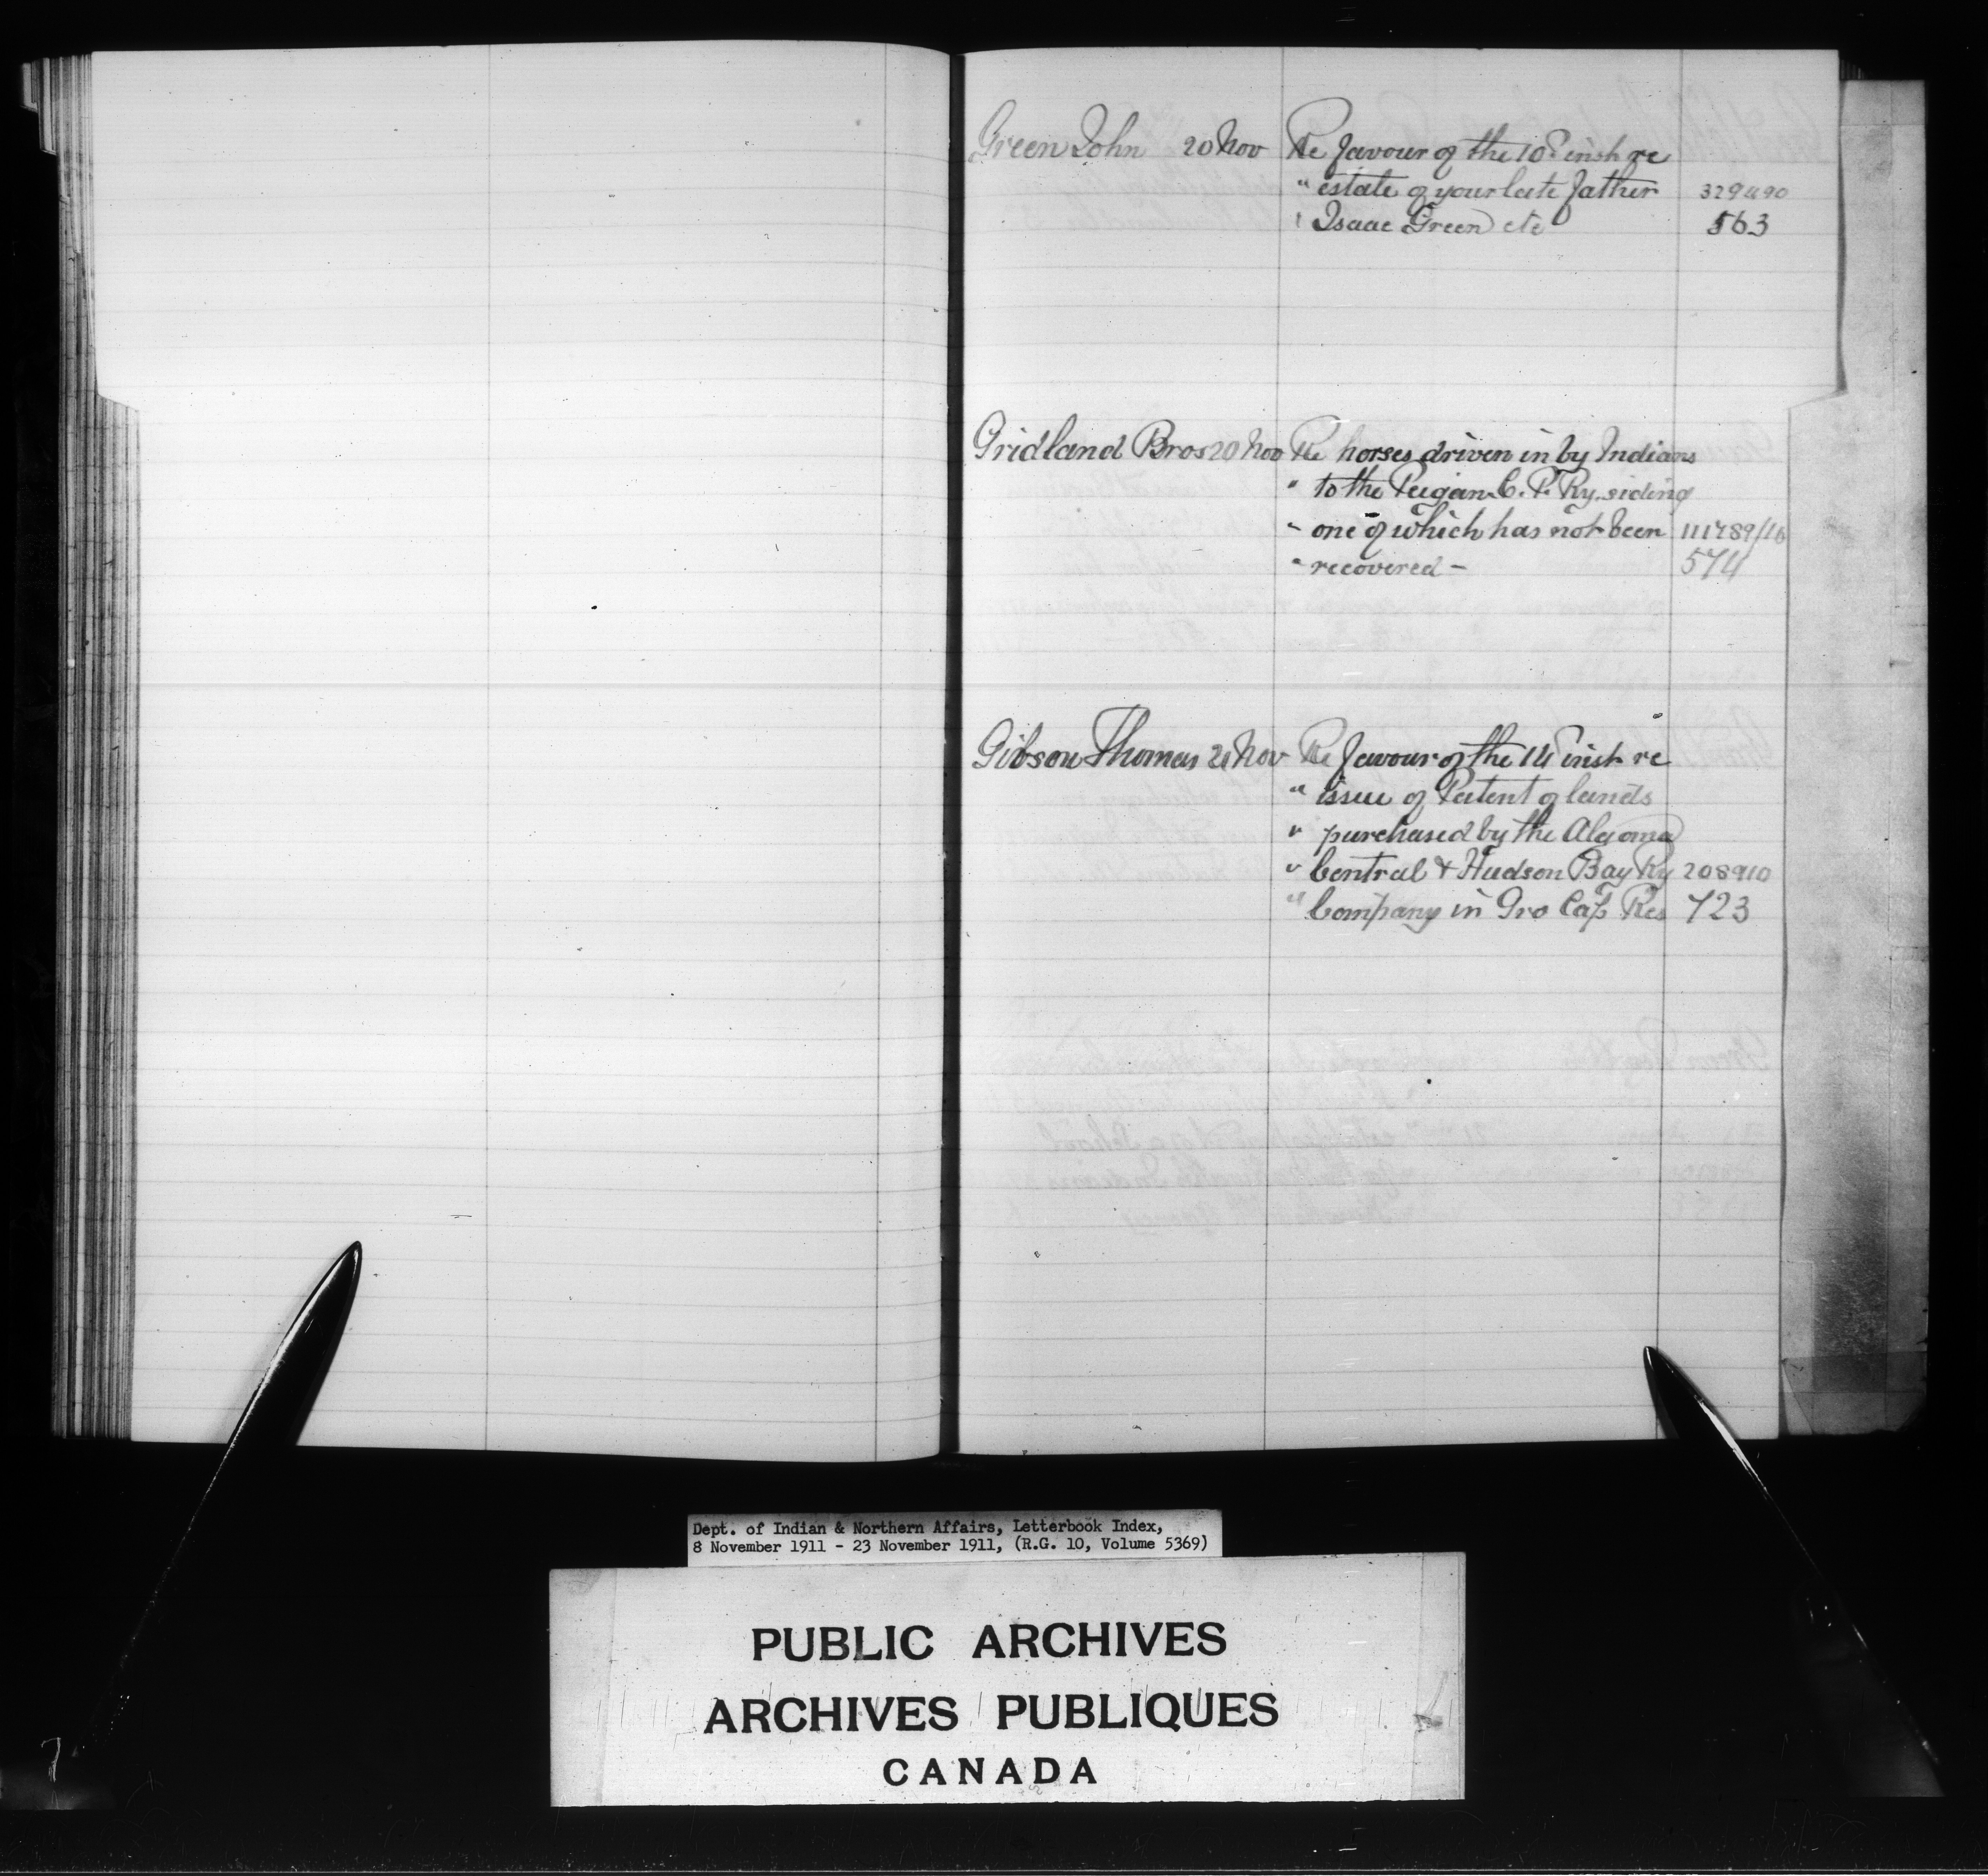 Green John 20 Nov Re favour of the 10th inst re
" estate of your late father 329490
" Isaac Green etc 563
Gridland Bros 20 Nov Re horses driven in by Indians
" to the Peigan C. P. Ry. siding
" one of which has not been 111489/16
" recovered - 574
Gibson Thomas 21 Nov Re favour of the 14th inst re
" issue of Patent of lands
" purchased by the Algoma
" Central & Hudson Bay Ry 208910
" Company in Gro Cap Res 723
Dept. of Indian & Northern Affairs, Letterbook Index,
8 November 1911 - 23 November 1911, (R.G. 10, Volume 5369)
PUBLIC ARCHIVES
ARCHIVES PUBLIQUES
CANADA